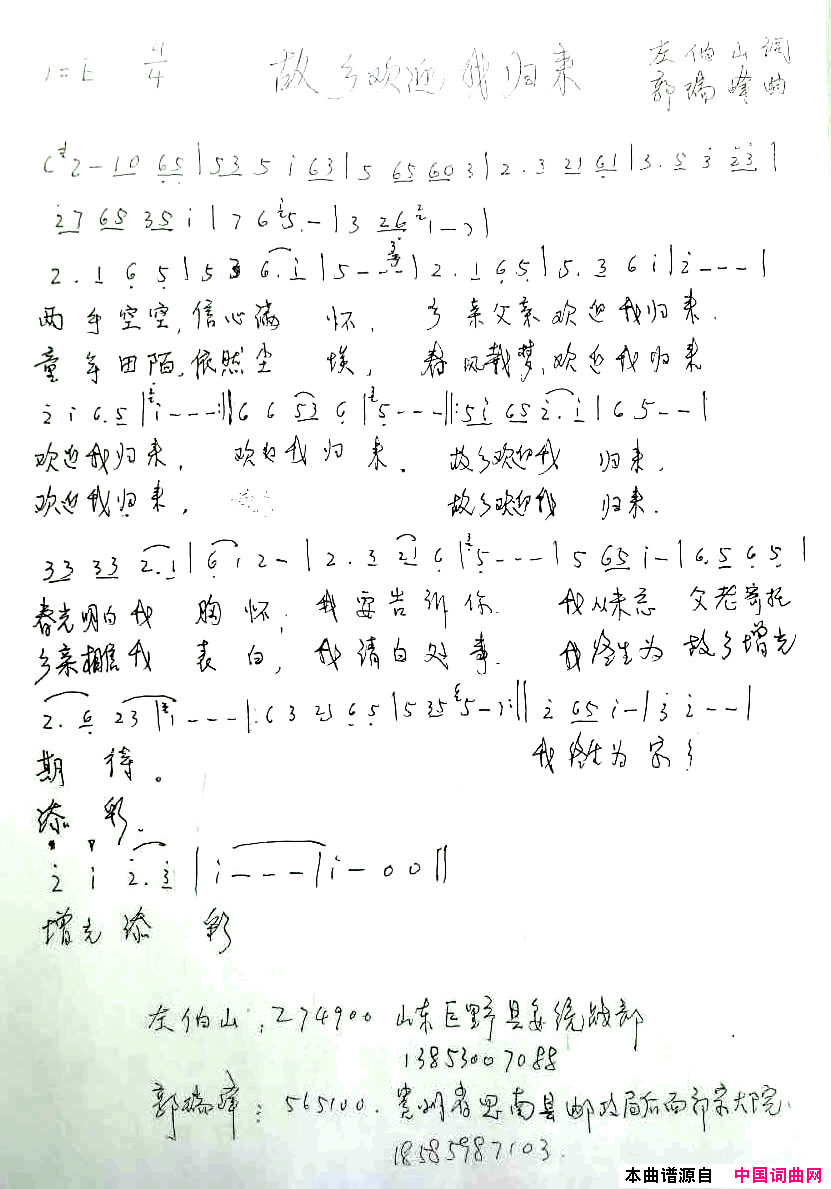 1=E 4/4 故乡欢迎我归来 左伯山词
郭瑞峰曲
2 - 1 0 6 5 | 5 3 5 i 6 3 | 5 6 5 6 0 3 | 2 . 3 2 1 6 1 | 3 . 5 3 2 3 |
2 7 6 5 3 5 i | 7 6 5 . - | 3 2 6 1 - - ) |
2 . 1 6 5 | 5 3 6 . i | 5 - - - | 2 . 1 6 5 | 5 . 3 6 i | i - - - |
两手空空,信心满 怀, 乡亲父亲欢迎我归来.
童年田陌,依然尘 埃, 春风载梦,欢迎我归来
2 i 6 . 5 | i - - - :|| 6 6 5 3 6 | 5 - - - ||: 5 i 6 5 2 . i | 6 5 - - |
欢迎我归来, 欢迎我归 来. 故乡欢迎我 归来,
欢迎我归来, 故乡欢迎我 归来.
3 3 3 3 2 . 1 | 6 i 2 - | 2 . 3 2 1 6 | 5 - - - | 5 6 5 i - | 6 . 5 6 5 |
春光明白我 胸怀, 我要告诉你 我从未忘 父老寄托
乡亲相信我 表白, 我请白处事 我终生为 故乡增光
2 . 6 2 3 | 1 - - - |: 6 3 2 3 6 5 | 5 3 5 5 - ) :|| 2 6 5 i - | 3 2 - - |
期 待。 我终生为 家乡
添 彩.
2 i 2 . 3 | i - - - | i - 0 0 ||
增光添 彩
左伯山:274900 山东巨野县委统战部
13853007088
郭瑞峰:565100. 贵州省思南县邮政局后面郭家大院.
18585987103.
本曲谱源自 中国词曲网